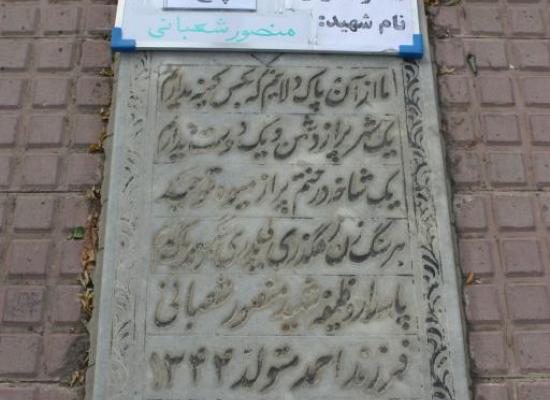 نام شهید: منصور شعبانی
ما از آن پاک دلانیم که بکس کینه نداریم
یک شهر پر از دشمن و یک دوست نداریم
یک شاخه درختم پر از میوه توحید
هر سنگ زن رهگذری
پاسدار وظیفه شهید منصور شعبانی
فرزند احمد متولد ۱۳۴۴